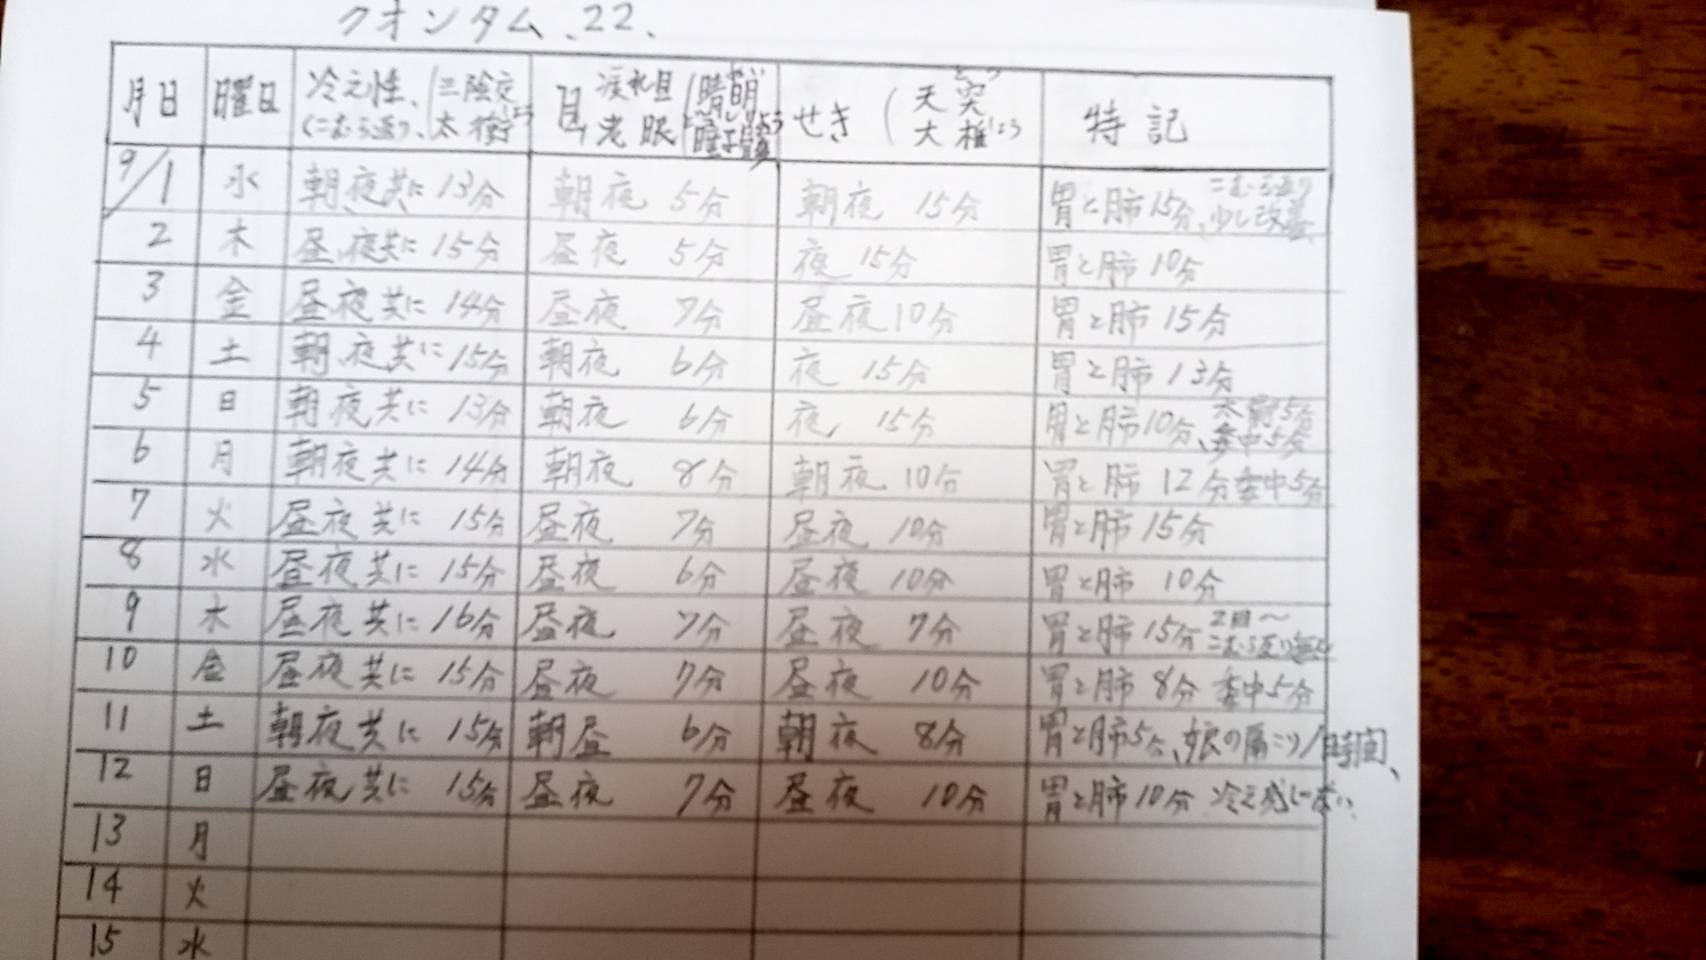 クオンタム、22、
月日 曜日 冷え性、(三陰交 目 疲れ目(睛明 せき (天突 特記
(こむら返り、太衝 老眼 瞳子髎 大椎
9/1 水 朝夜共に 13分 朝夜 5分 朝夜 15分 胃と肺15分、こむら返り少し改善、
2 木 昼、夜共に 15分 昼夜 5分 夜 15分 胃と肺 10分
3 金 昼夜共に 14分 昼夜 7分 昼夜 10分 胃と肺 15分
4 土 朝、夜共に 15分 朝夜 6分 夜 15分 胃と肺 13分
5 日 朝夜共に 13分 朝夜 6分 夜、15分 胃と肺10分、太衝5分 委中5分
6 月 朝夜共に 14分 朝夜 8分 朝夜 10分 胃と肺 12分 委中5分
7 火 昼夜共に 15分 昼夜 7分 昼夜 10分 胃と肺 15分
8 水 昼夜共に 15分 昼夜 6分 昼夜 10分 胃と肺 10分
9 木 昼夜共に 16分 昼夜 7分 昼夜 7分 胃と肺 15分 2日〜こむら返り無し
10 金 昼夜共に 15分 昼夜 7分 昼夜 10分 胃と肺 8分 委中5分
11 土 朝夜共に 15分 朝昼 6分 朝夜 8分 胃と肺5分、娘の肩こり1時間、
12 日 昼夜共に 15分 昼夜 7分 昼夜 10分 胃と肺10分 冷え感じない、
13 月
14 火
15 水